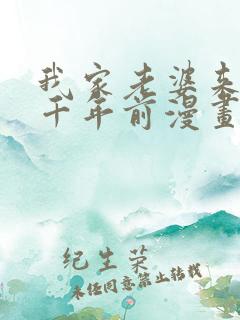 我家老婆来
千年前漫畫
纪生荣
未经同意禁止转载